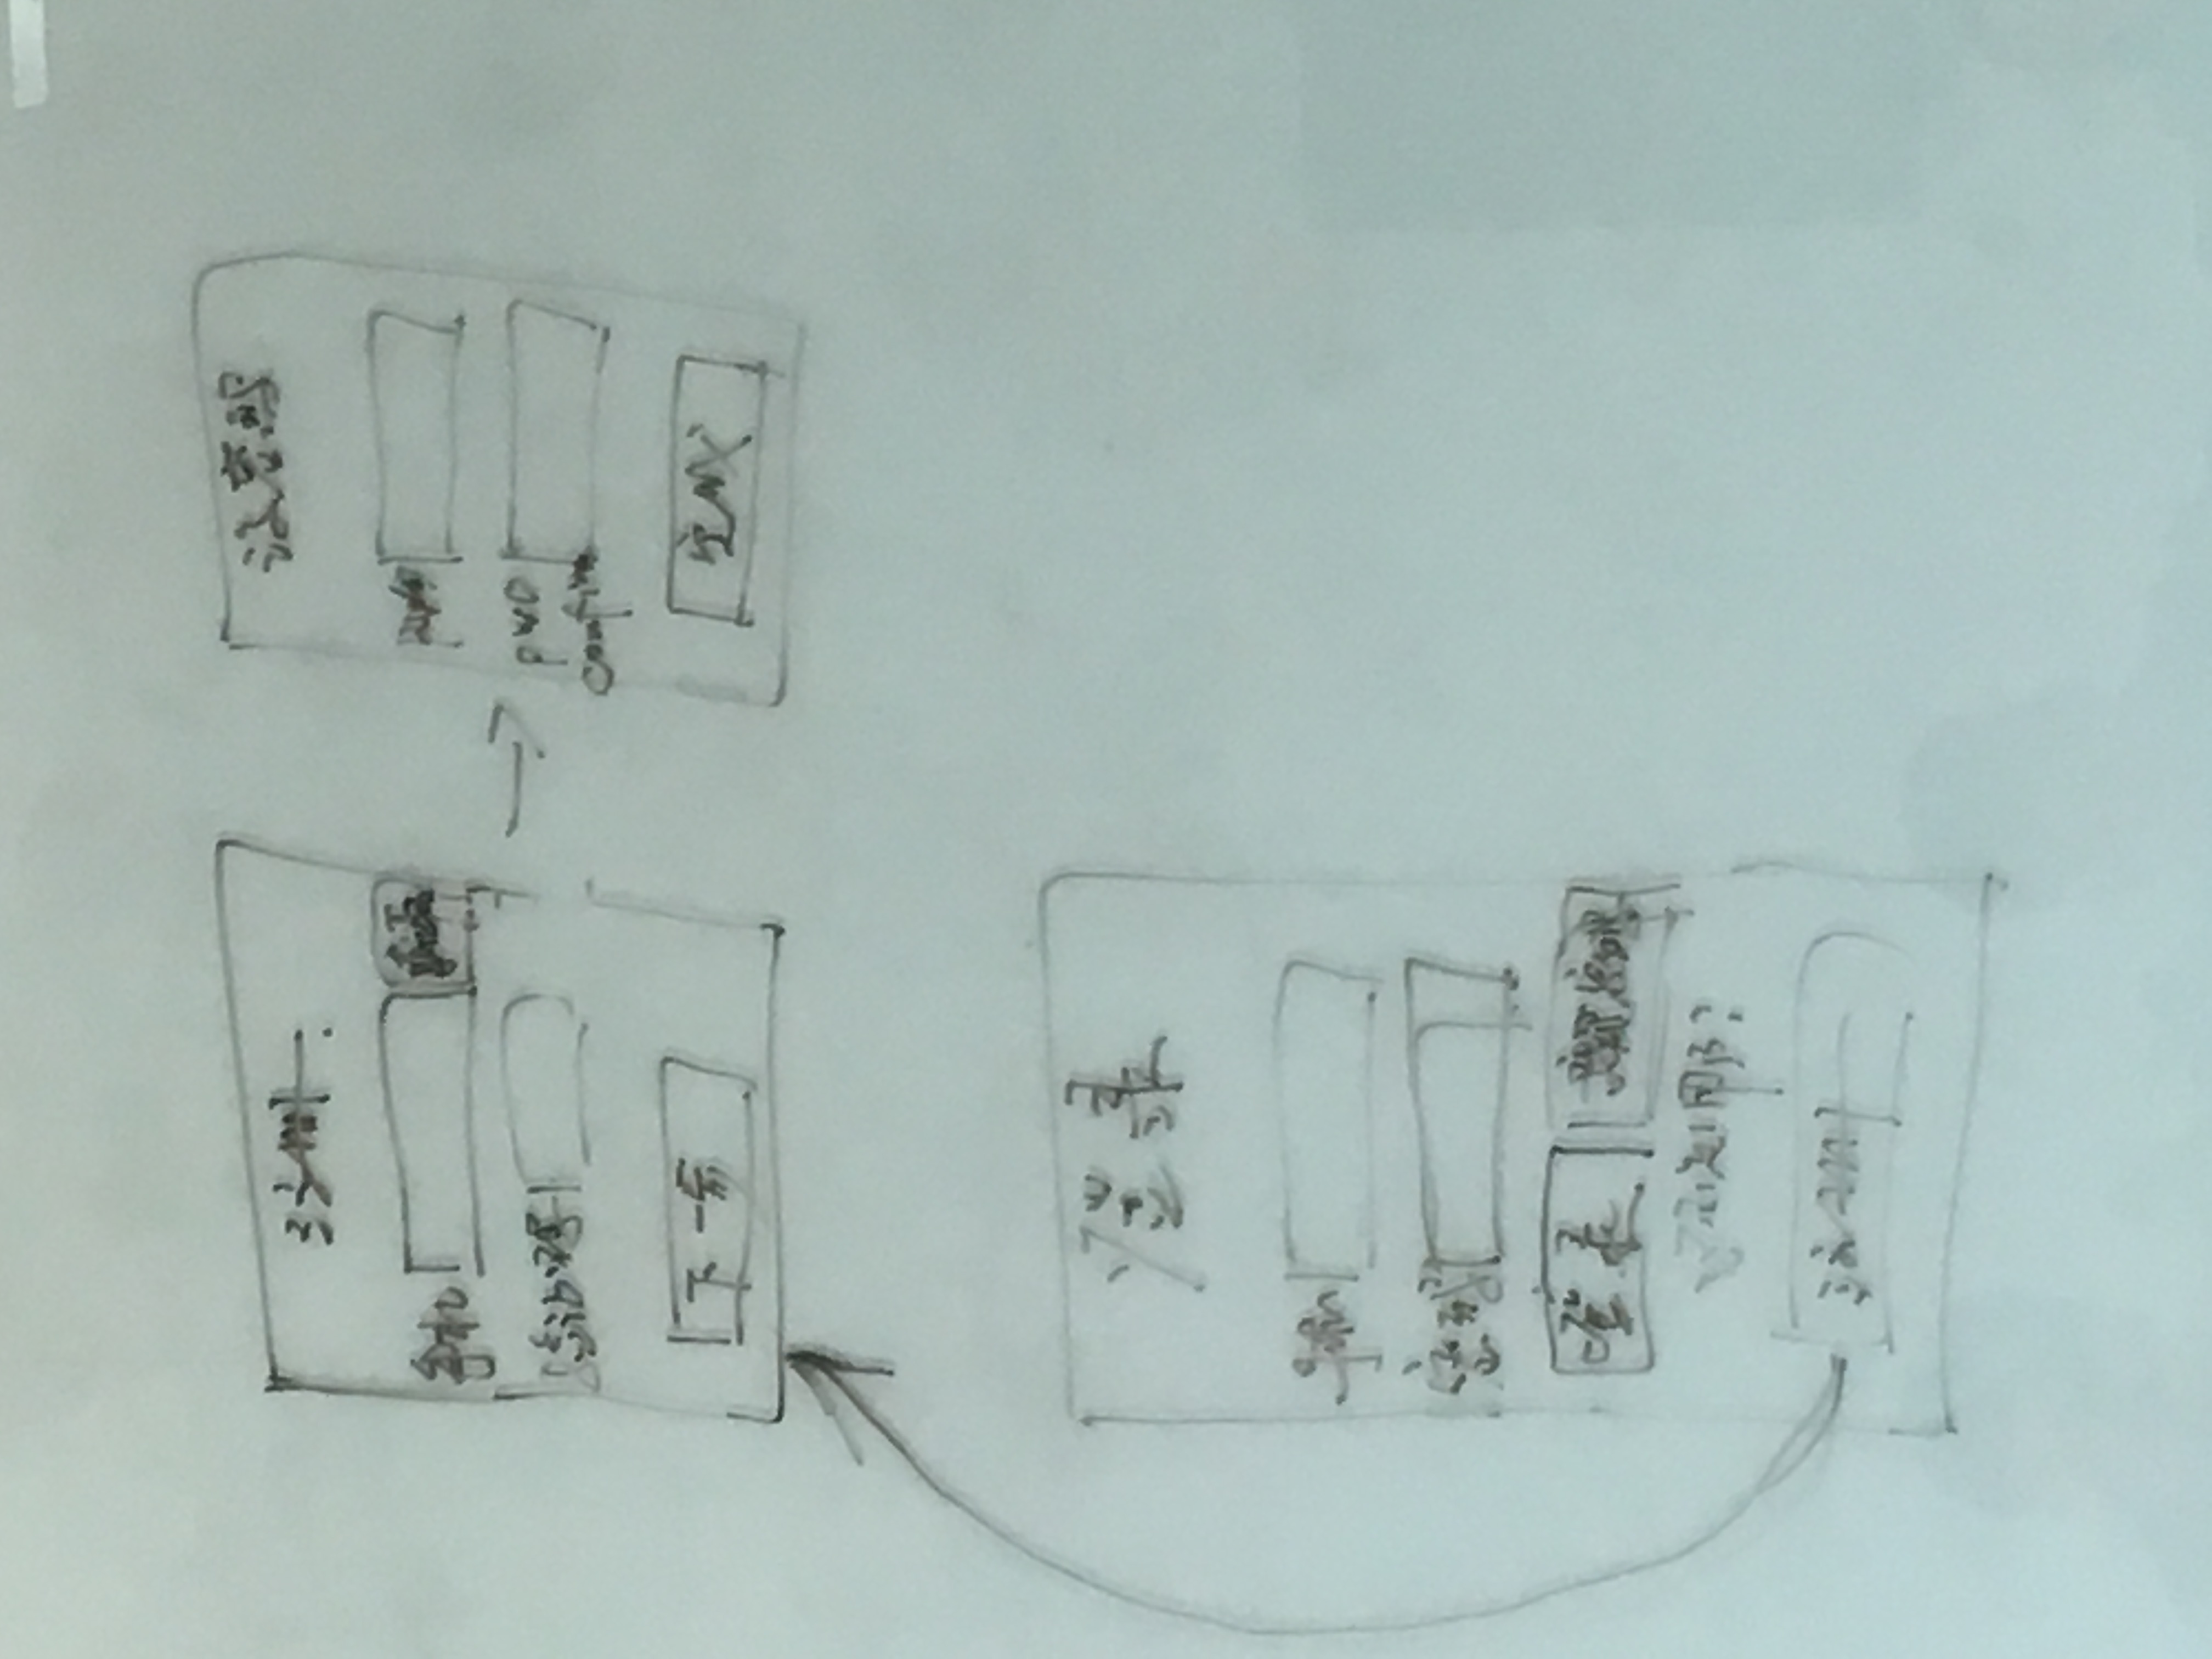 注册
手机
验证码
下一步
设密码
pwd
confirm
完成
登录
手机
密码
登录
还不是用户?
注册